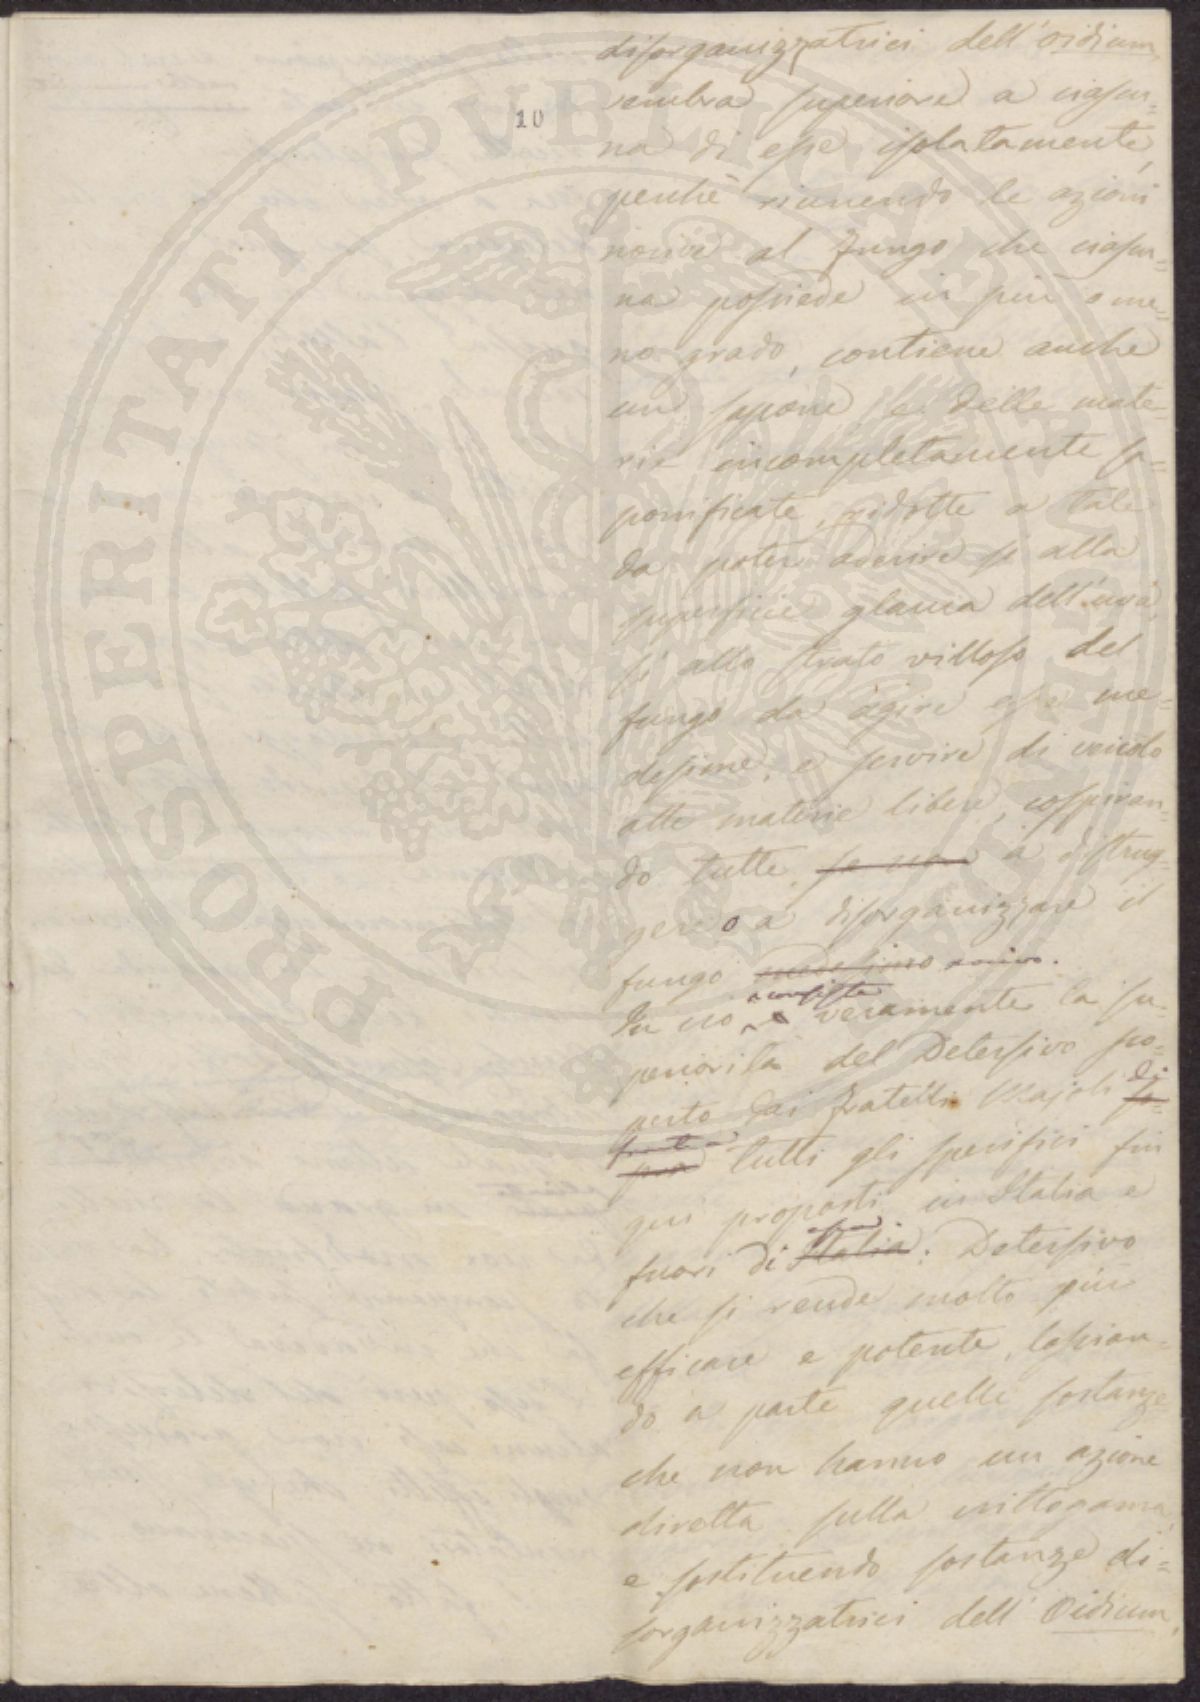 10
disorganizzatrici dell'oidium
sembra superiore a ciascu=
na di esse isolatamente,
perchè riunendo le azioni
nocive al fungo che ciascu=
na possiede in più o me=
no grado, contiene anche
un sapone, e delle mate=
rie incompletamente sa=
ponificate, ridotte a tale
da poter aderire sì alla
superficie glauca dell'uva,
sì allo strato villoso del
fungo da agire esse me=
desime, e servire di veicolo
alle materie libere, cospiran=
do tutte a distrug=
gere o a disorganizzare il
fungo medesimo nocivo.
In ciò consiste veramente la su=
periorità del Detersivo sco=
perto dai fratelli Majoli di
fronte a tutti gli specifici fin
qui proposti in Italia e
fuori di essa Italia. Detersivo
che si rende molto più
efficace e potente, lascian=
do a parte quelle sostanze
che non hanno un azione
diretta sulla crittogama,
e sostituendo sostanze di=
sorganizzatrici dell'Oidium,
PROSPERITATI PUBLICAE